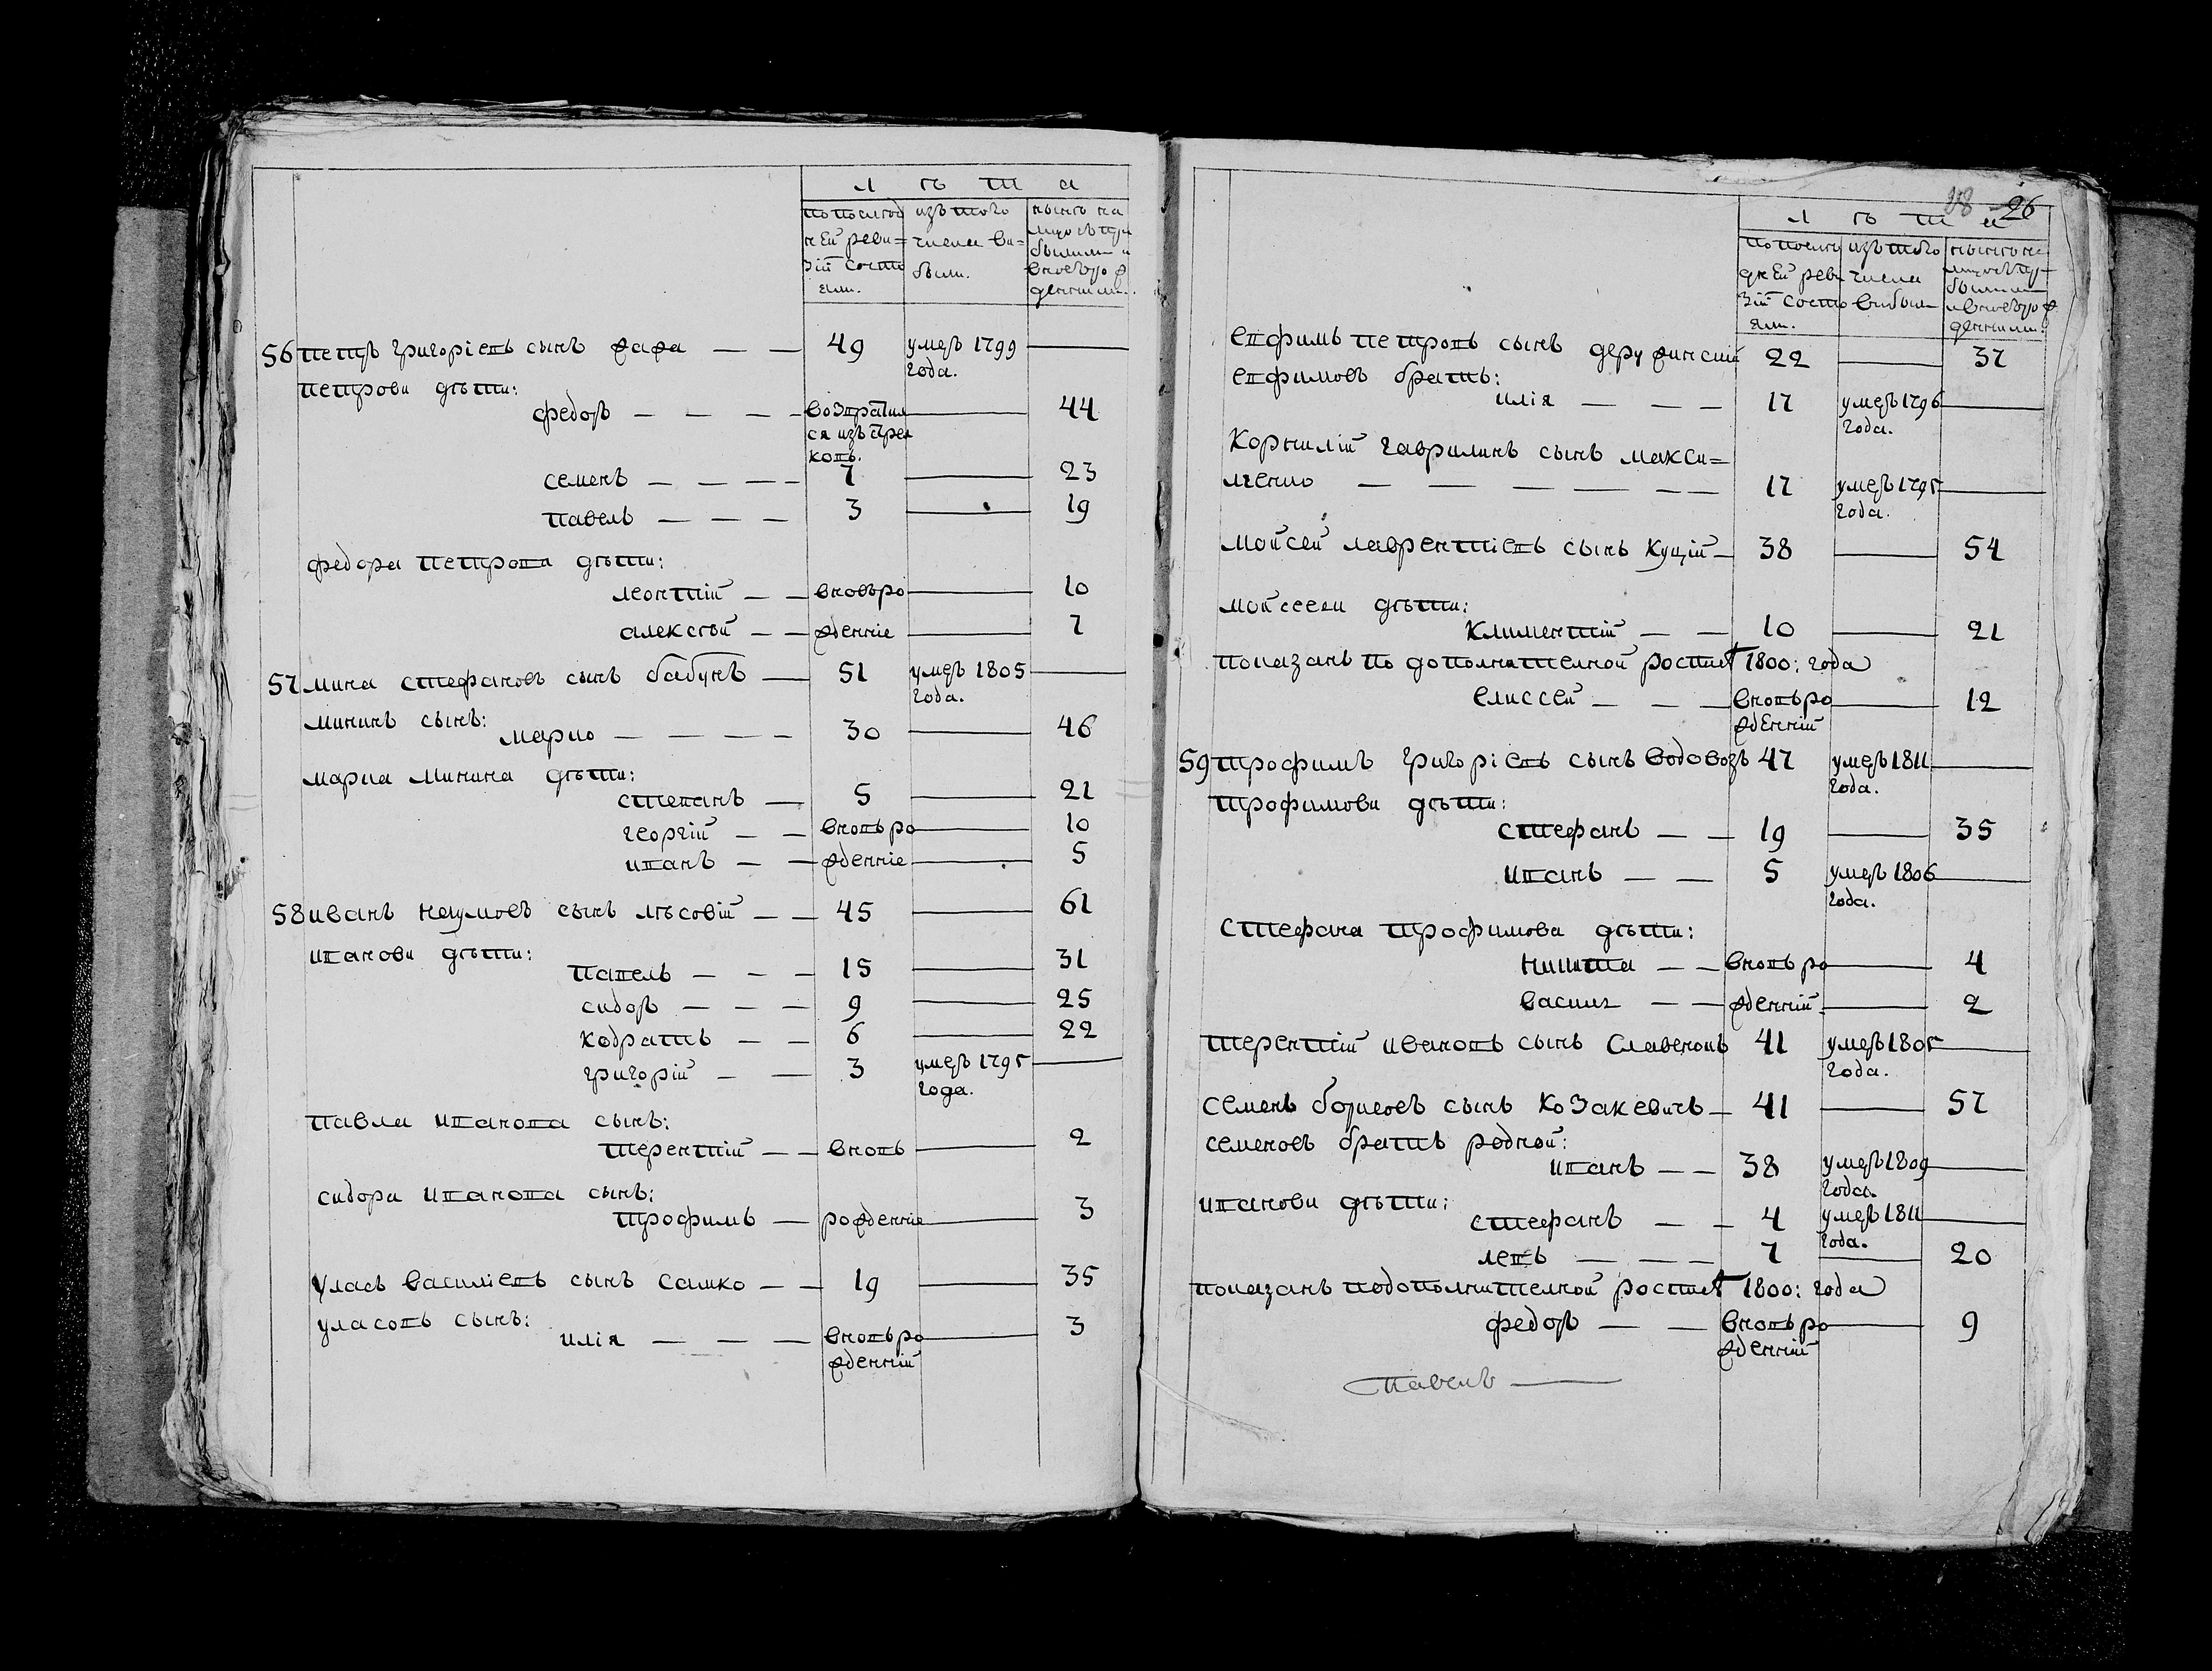 Л ѣ т а
по послѣд изъ того нынѣ на
ней реви= числа ви= лицо съ при
зіи состо били. былими и
яли. вновъ рож
денними.
56 петръ григоріевъ сынъ жажа — — 49 умеръ 1799 —
года.
петрови дѣти:
федоръ — — — — возвратил — 44
ся изъ
ковъ.
семенъ — — — — 7 — 23
павелъ — — — 3 — 19
федора петрова дѣти:
леонтій — — вновъ ро — 10
алексѣй — — жденніе — 7
57 мина стефановъ сынъ бабунъ — 51 умеръ 1805 —
года.
мининъ сынъ:
марко — — — — 30 — 46
марка минина дѣти:
степанъ — 5 — 21
георгій — — вновь ро — 10
иванъ — — жденніе — 5
58 иванъ наумовъ сынъ лѣсовій — — 45 — 61
иванови дѣти:
павелъ — — — 15 — 31
сидоръ — — — 9 — 25
кодратъ — — 6 — 22
григорій — — 3 умеръ 1795 —
года.
павла иванова сынъ:
терентій — — вновь — 2
сидора иванова сынъ:
трофимъ — рожденніе — 3
уласъ василіевъ сынъ сашко — — 19 — 35
уласовъ сынъ:
илія — — — вновь ро — 3
жденній
28 26
Л ѣ т а
по послѣ изъ того нынѣ на
дней реви числа лицо съ при
зіи состо вибыли былими
яли. и вновъ рож
денними.
евфимъ петровъ сынъ держинскій 22 — 37
евфимовъ братъ:
илія — — — 17 умеръ 1796 —
года.
корнилій гаврилинъ сынъ макси=
мченко — — — — — — 17 умеръ 1795 —
года.
мойсей лаврентіевъ сынъ куцій — 38 — 54
мойсееви дѣти:
климентій — — 10 — 21
показанъ по дополнителной росписѣ 1800: года
елиссей — — — вновь ро — 12
жденній
59 трофимъ григоріевъ сынъ водовозъ 47 умеръ 1811 —
года.
трофимови дѣти:
стефанъ — — 19 — 35
иванъ — — 5 умеръ 1806 —
года.
стефана трофимова дѣти:
никита — — вновь ро — 4
василь — — жденній — 2
терентій ивановъ сынъ славковъ 41 умеръ 1805 —
года.
семенъ борисовъ сынъ козакевичъ — 41 — 57
семеновъ братъ родной:
иванъ — — 38 умеръ 1809 —
года.
иванови дѣти:
стефанъ — — 4 умеръ 1811 —
года.
левъ — — — 7 — 20
показанъ по дополнителной росписѣ 1800: года
федоръ — — вновь ро — 9
жденній
павелъ —